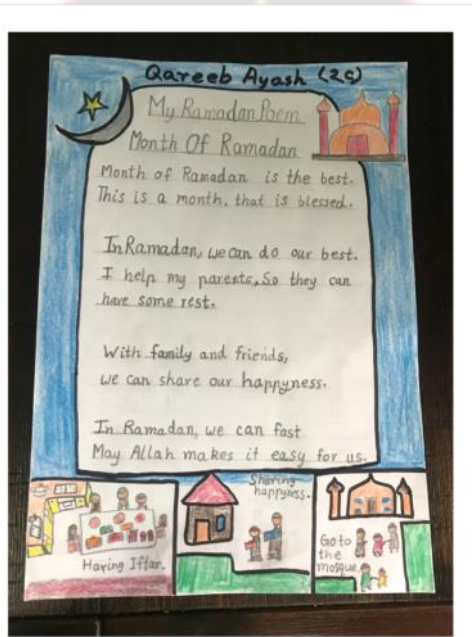 Qareeb Ayash (2G)
My Ramadan Poem
Month Of Ramadan
Month of Ramadan is the best.
This is a month, that is blessed.
In Ramadan, we can do our best.
I help my parents, So they can
have some rest.
With family and friends,
we can share our happyness.
In Ramadan, we can fast
May Allah makes it easy for us.
Having Iftar.
Sharing
happyness.
Go to
the
mosque.